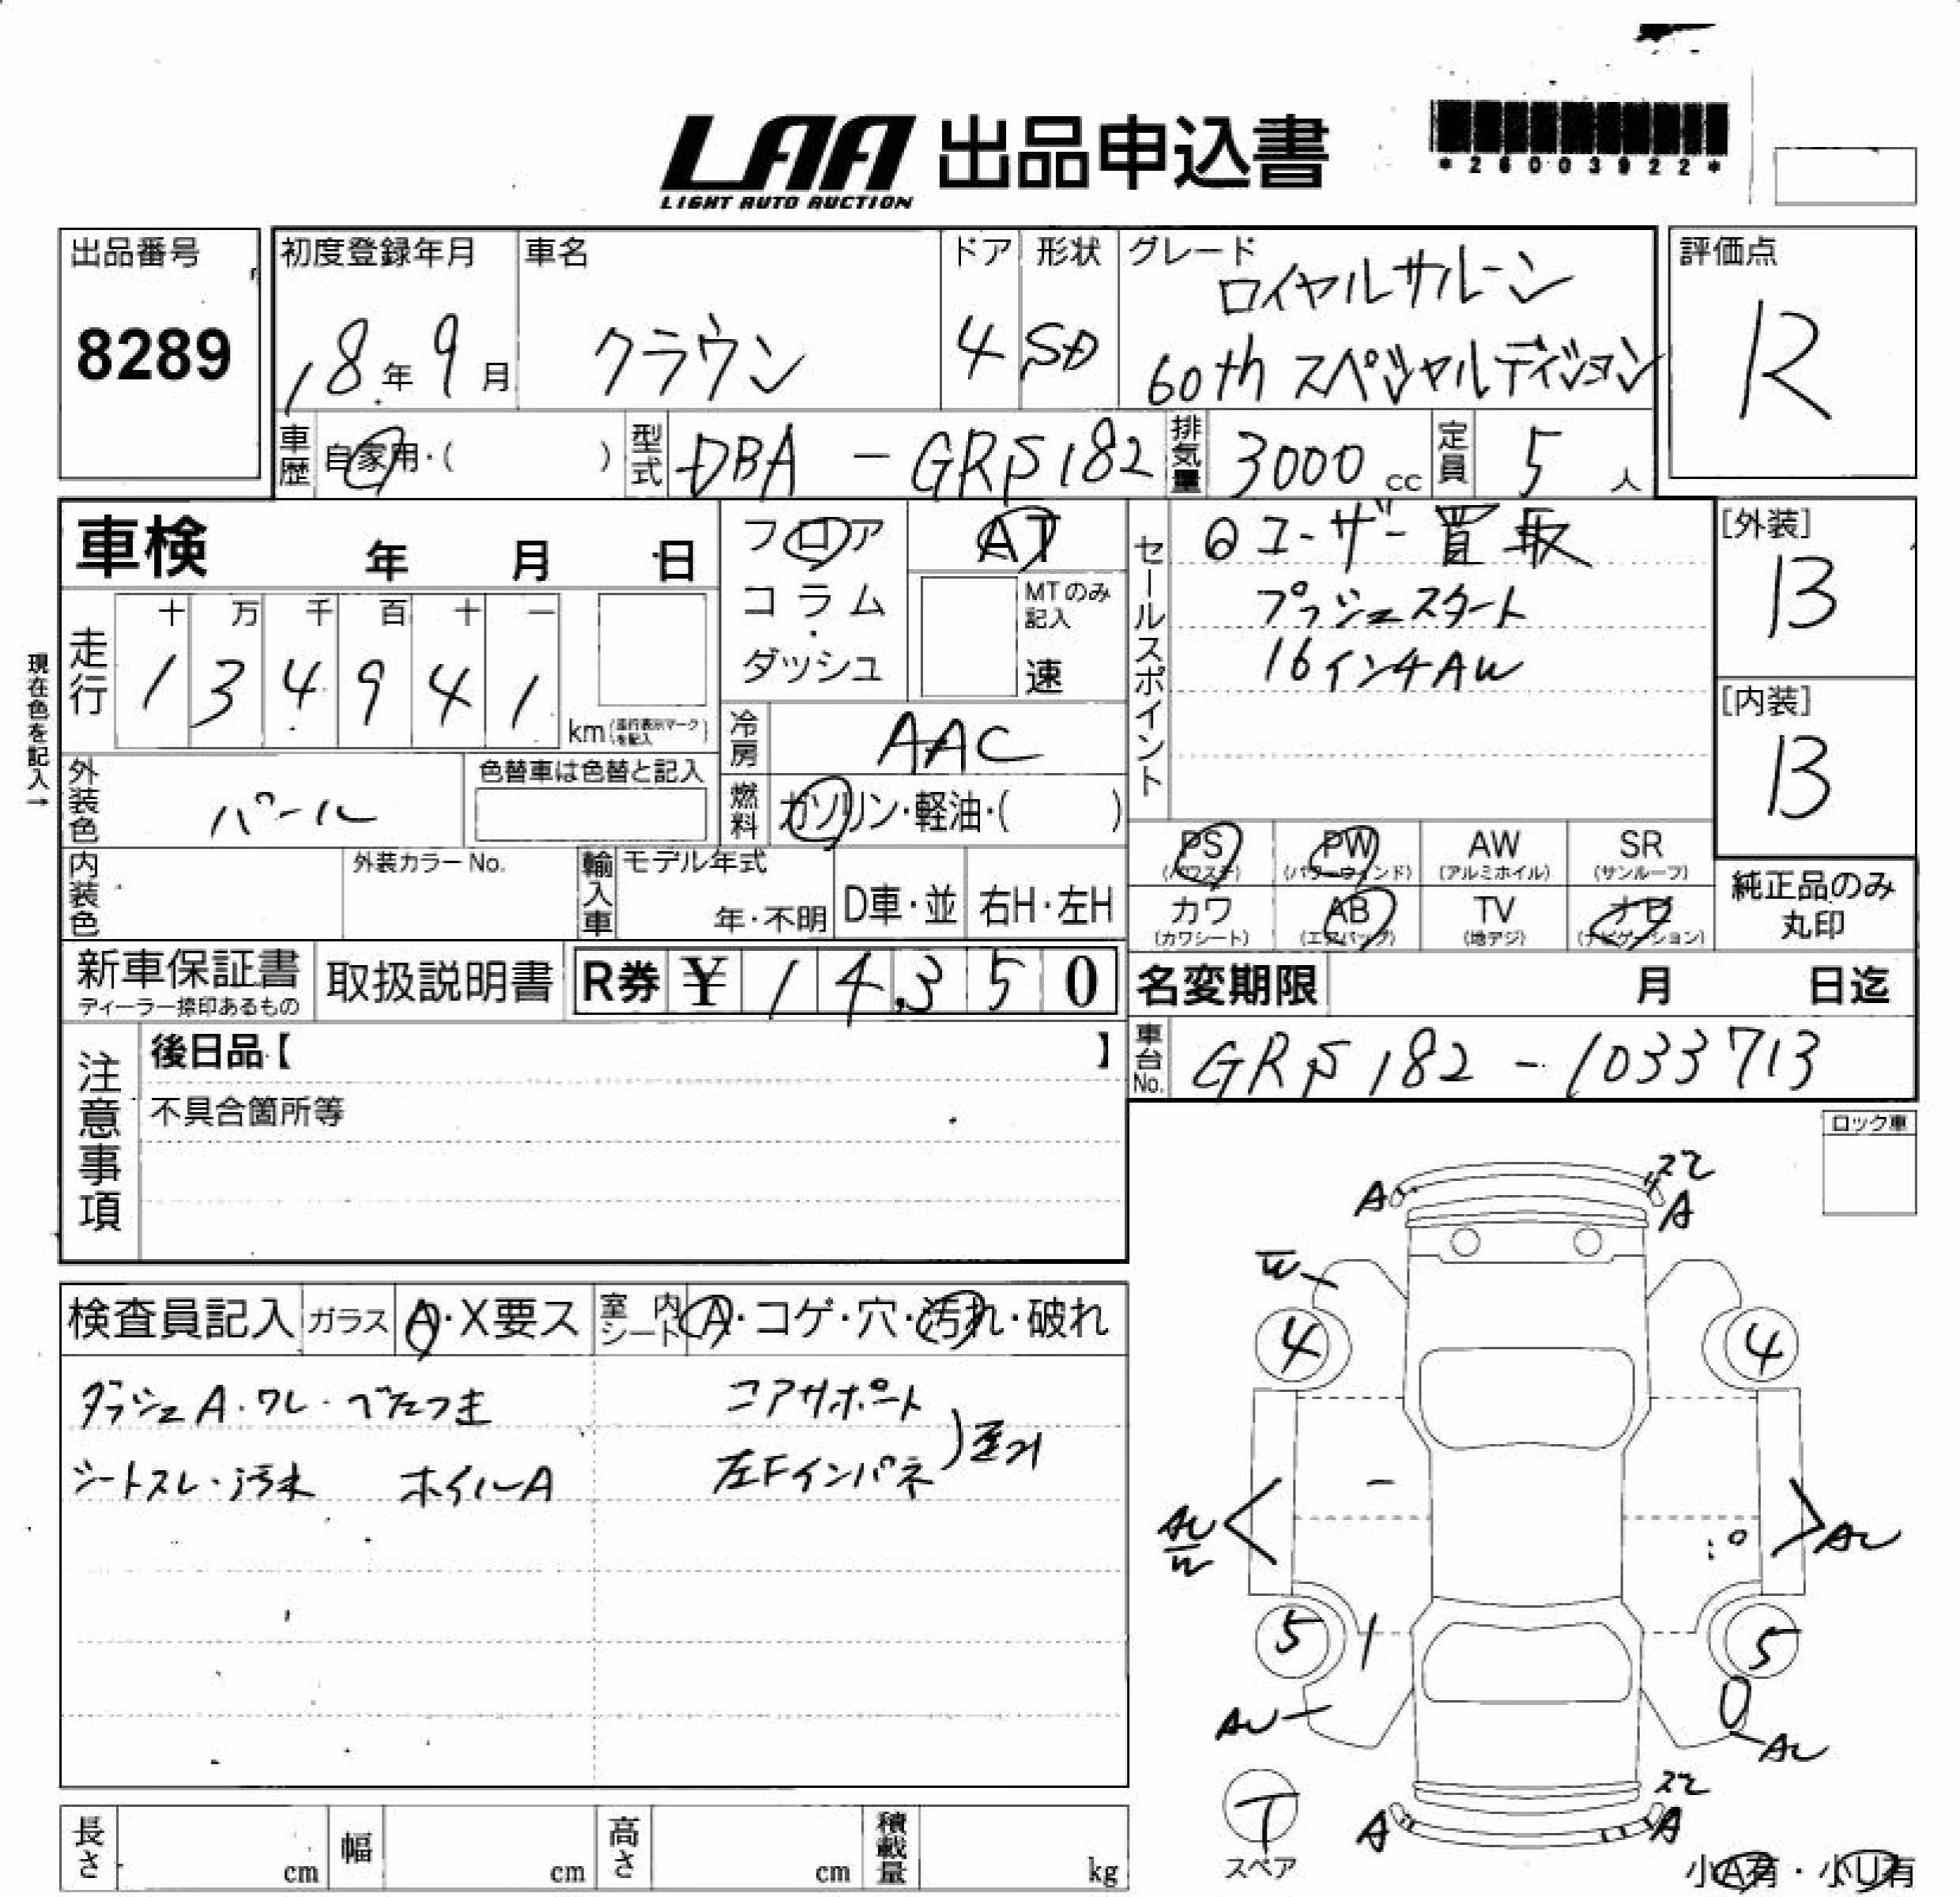 LAA 出品申込書
LIGHT AUTO AUCTION
*26003922*
出品番号
8289
初度登録年月
18年9月
車名
クラウン
ドア
4
形状
SD
グレード
ロイヤルサルーン
60th スペシャルエディション
評価点
R
車歴
自家用・( )
型式
DBA - GRS182
排気量
3000 cc
定員
5 人
車検 年 月 日
フロア
コラム
・
ダッシュ
AT
MTのみ記入
速
セールスポイント
ユーザー買取
プッシュスタート
16インチAW
[外装]
B
[内装]
B
現在色を記入→
走行
十 万 千 百 十 一
1 3 4 9 4 1
km (走行表示マークを記入)
冷房
AAC
外装色
パール
色替車は色替と記入
燃料
ガソリン・軽油・( )
PS
(パワステ)
PW
(パワーウィンド)
AW
(アルミホイル)
SR
(サンルーフ)
カワ
(カワシート)
AB
(エアバッグ)
TV
(地デジ)
ナビ
(ナビゲーション)
純正品のみ
丸印
内装色
外装カラーNo.
輸入車
モデル年式
年・不明
D車・並
右H・左H
新車保証書
ディーラー捺印あるもの
取扱説明書
R券 ¥ 14,350
名変期限 月 日迄
車台No.
GRS182-1033713
注意事項
後日品【 】
不具合箇所等
ロック車
検査員記入
ガラス
A・X要ス
室内シート
A・コゲ・穴・汚れ・破れ
ダッシュA・ワレ・べたつき
シートスレ・汚れ ホイルA
コアサポート
左Fインパネ
A
スレ
A
W
4
4
AU
W
AU
5
5
AU
AU
T
スペア
スレ
A
A
小A有・小U有
長さ cm
幅 cm
高さ cm
積載量 kg